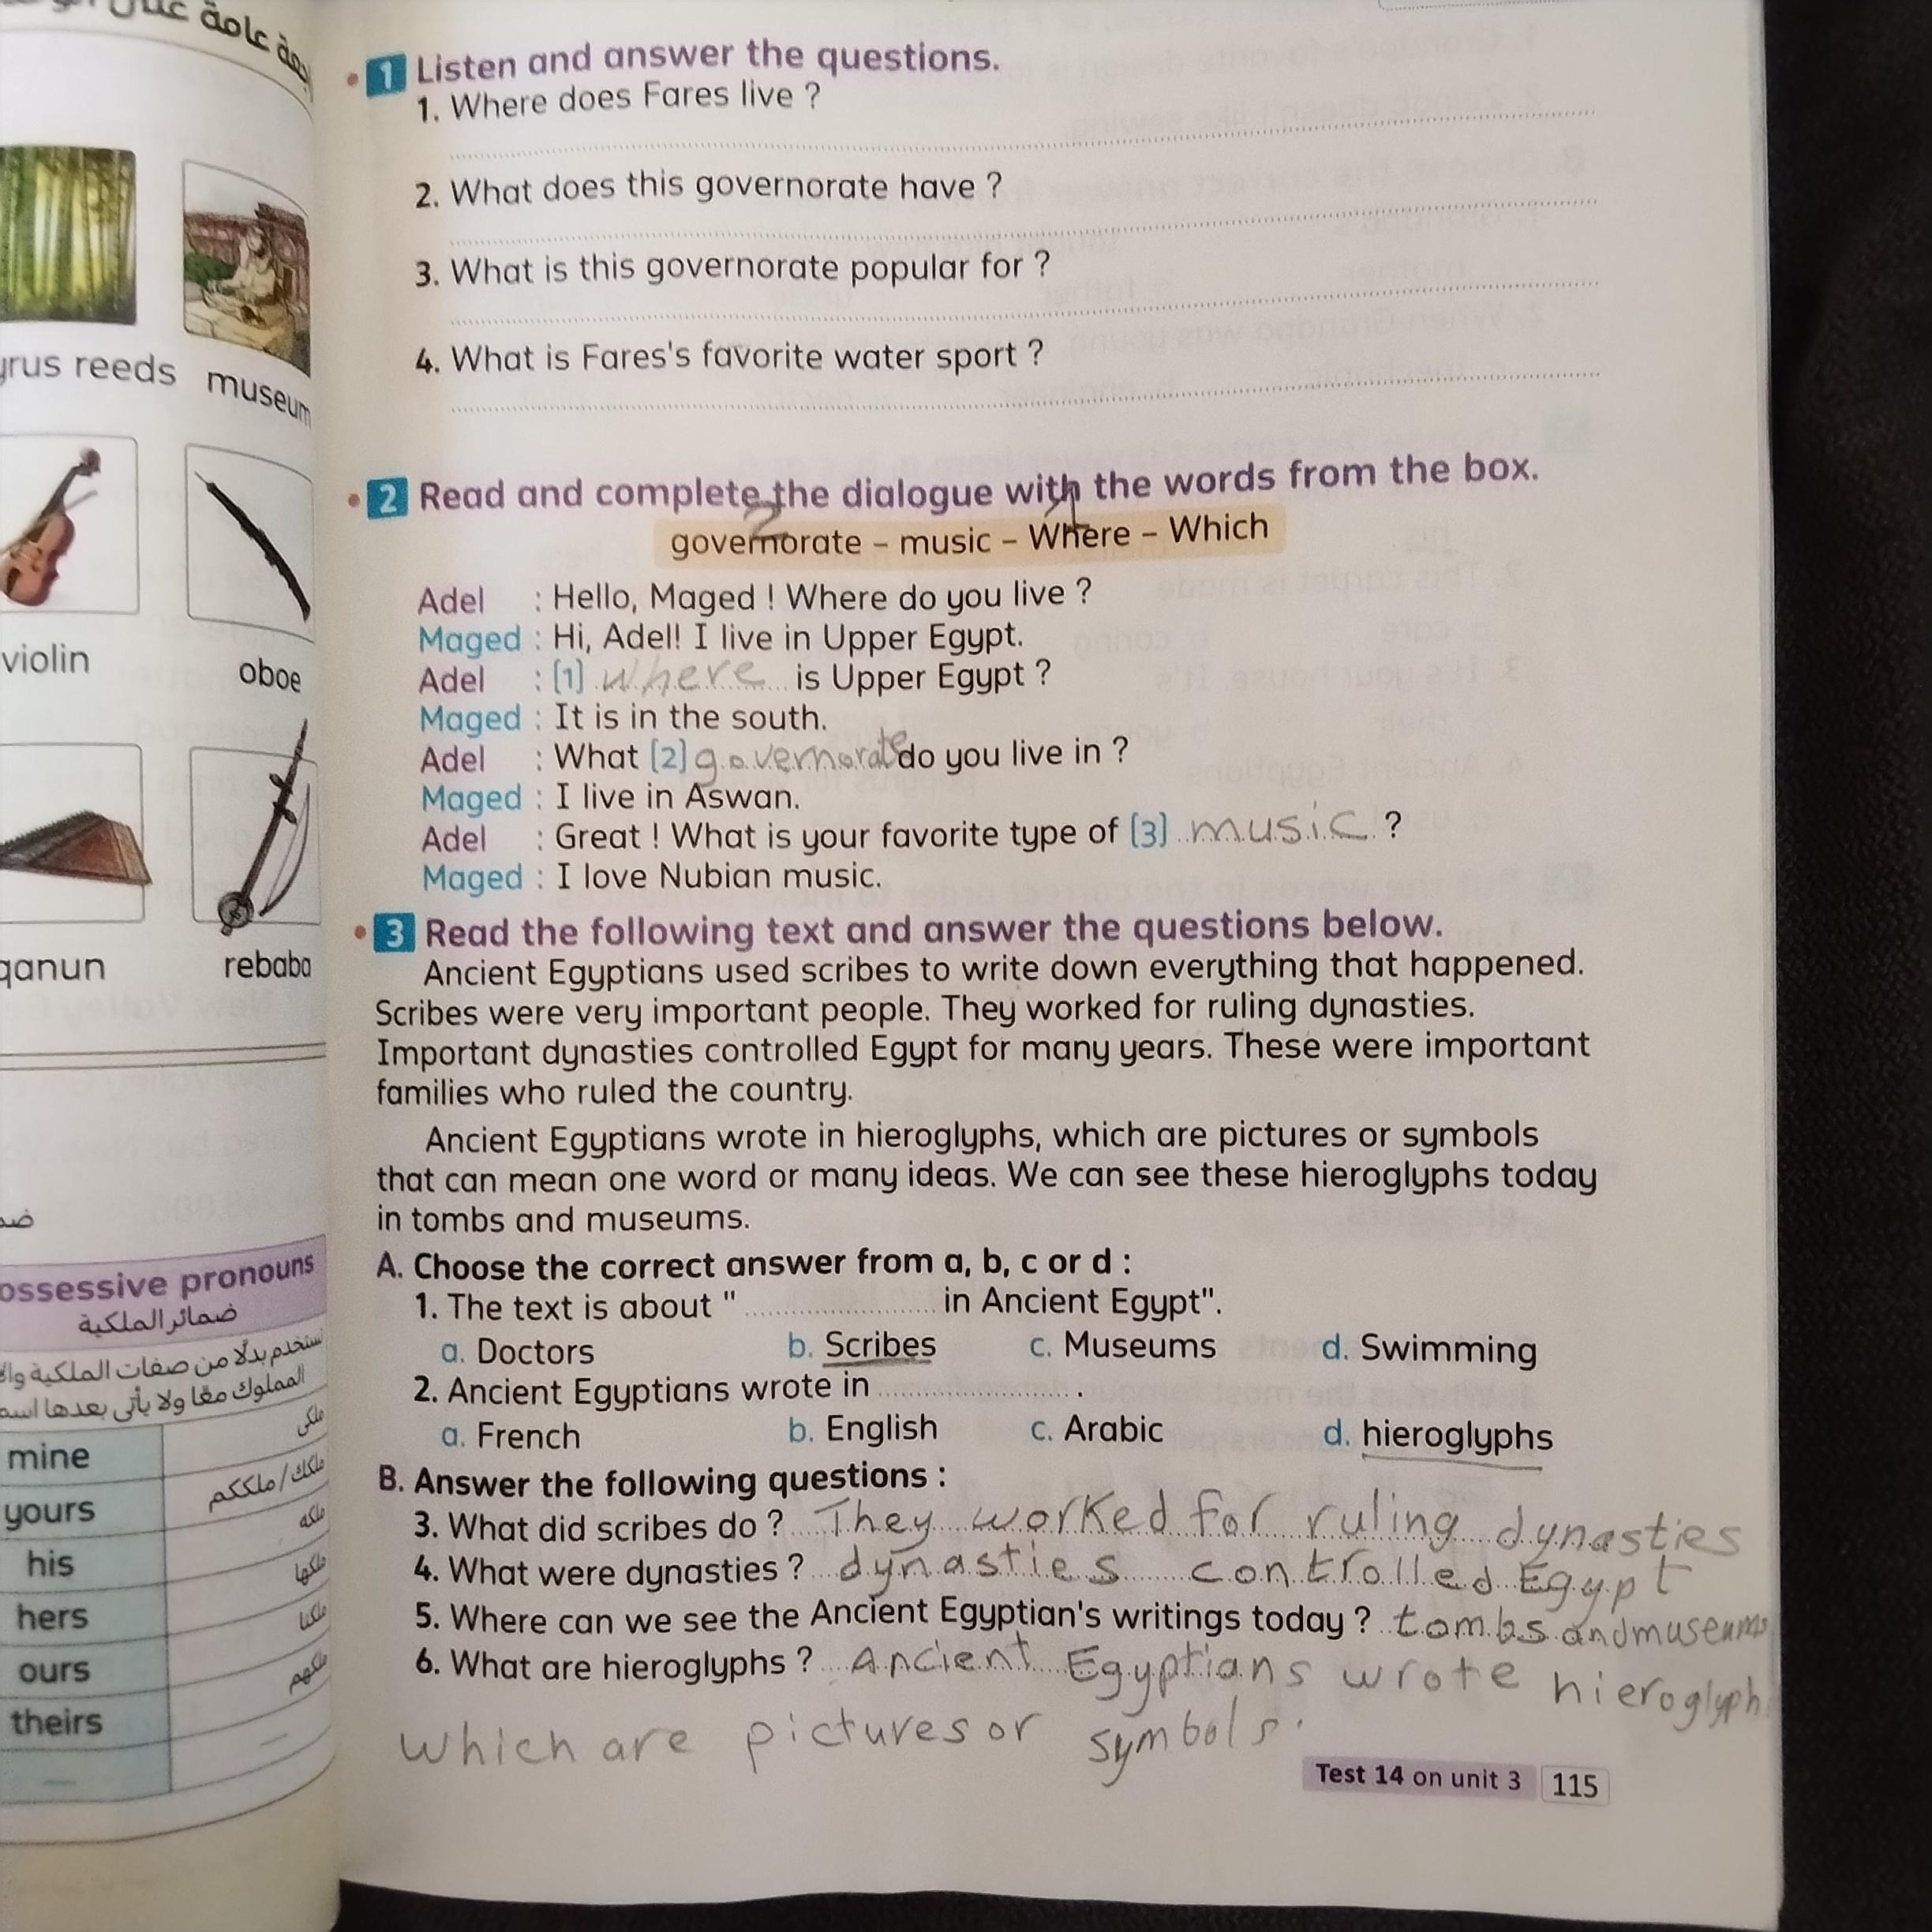 museum
violin
oboe
qanun
rebaba
possessive pronouns
ضمائر الملكية
mine
yours
his
hers
ours
theirs
ملكى
ملكك/ملككم
ملكه
ملكها
ملكنا
ملكهم
1 Listen and answer the questions.
1. Where does Fares live ?
2. What does this governorate have ?
3. What is this governorate popular for ?
4. What is Fares's favorite water sport ?
2 Read and complete the dialogue with the words from the box.
2 1
governorate – music – Where – Which
Adel : Hello, Maged ! Where do you live ?
Maged : Hi, Adel! I live in Upper Egypt.
Adel : (1) where is Upper Egypt ?
Maged : It is in the south.
Adel : What (2) governorate do you live in ?
Maged : I live in Aswan.
Adel : Great ! What is your favorite type of (3) music ?
Maged : I love Nubian music.
3 Read the following text and answer the questions below.
Ancient Egyptians used scribes to write down everything that happened.
Scribes were very important people. They worked for ruling dynasties.
Important dynasties controlled Egypt for many years. These were important
families who ruled the country.
Ancient Egyptians wrote in hieroglyphs, which are pictures or symbols
that can mean one word or many ideas. We can see these hieroglyphs today
in tombs and museums.
A. Choose the correct answer from a, b, c or d :
1. The text is about " ........................ in Ancient Egypt".
a. Doctors b. Scribes c. Museums d. Swimming
2. Ancient Egyptians wrote in ........................ .
a. French b. English c. Arabic d. hieroglyphs
B. Answer the following questions :
3. What did scribes do ? They worked for ruling dynasties
4. What were dynasties ? dynasties controlled Egypt
5. Where can we see the Ancient Egyptian's writings today ? tombs and museums
6. What are hieroglyphs ? Ancient Egyptians wrote hieroglyph
which are pictures or symbols.
Test 14 on unit 3 115